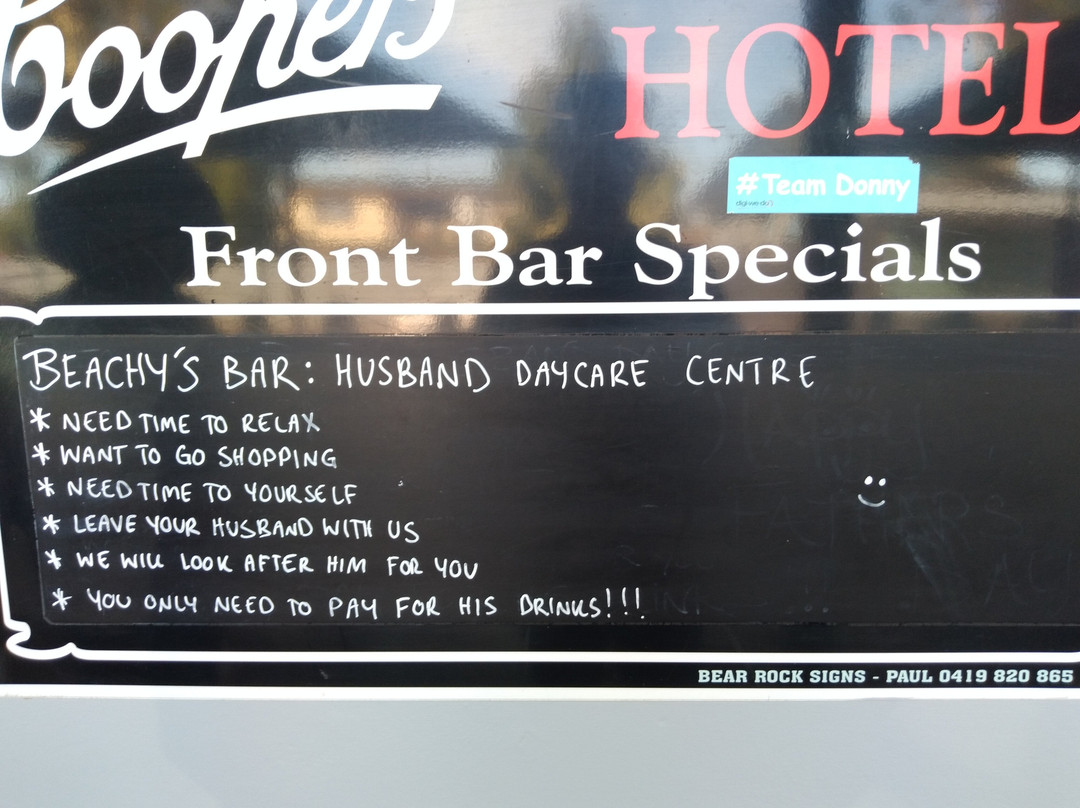 Coopers
HOTEL
#Team Donny
Front Bar Specials
BEACHY'S BAR: HUSBAND DAYCARE CENTRE
* NEED TIME TO RELAX
* WANT TO GO SHOPPING
* NEED TIME TO YOURSELF
* LEAVE YOUR HUSBAND WITH US
* WE WILL LOOK AFTER HIM FOR YOU
* YOU ONLY NEED TO PAY FOR HIS DRINKS!!!
BEAR ROCK SIGNS - PAUL 0419 820 865